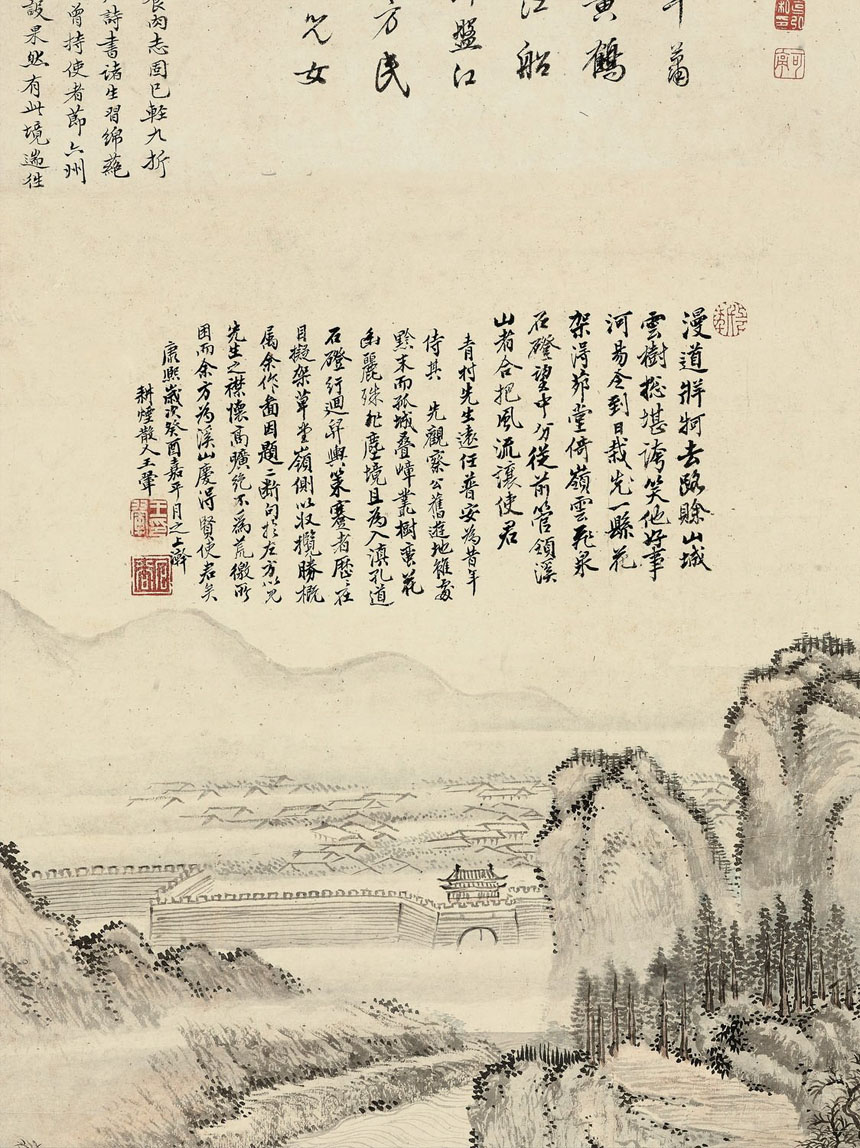 斗蕭
黃鶴
江船
盤江
方民
兒女
良內志固已軽九折
詩書諸生習綿蕝
曾持使者節六州
設果然有此境遄往
漫道牂牁去路賒山城
雲樹揔堪誇笑他好事
河昜令到日栽光一縣花
架得茆堂倚嶺雲飛泉
石磴望中分従前管領溪
山者合把風流讓使君
青村先生遠任普安為昔年
侍其 先觀察公舊遊地雖處
黔末而孤城叠嶂叢樹蛮花
幽麗殊非塵境且為入滇孔道
石磴行迴昇輿策蹇者歷〻在
目擬築草堂嶺側以収攬勝概
属余作畵因題二断句扵左方以見
先生之襟懷高曠絶不為荒徼所
困而余方為溪山慶得賢使君矣
康熙歲次癸酉嘉平月之上澣
耕煙散人王翬